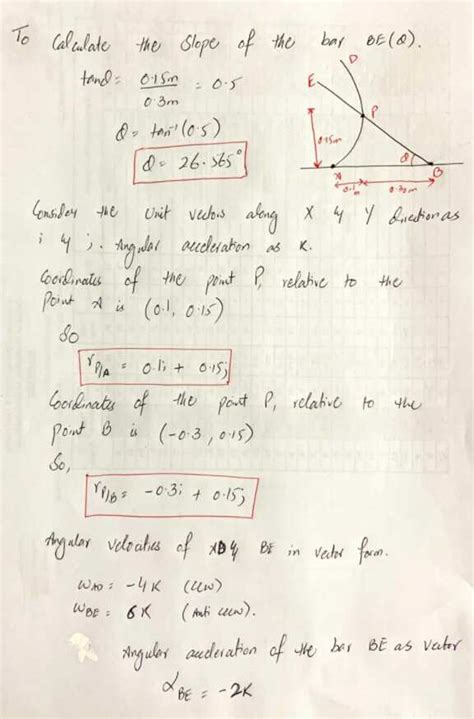 To Calculate the Slope of the bar BE(θ).
tanθ = 0.15m / 0.3m = 0.5
θ = tan⁻¹(0.5)
θ = 26.565°
D
E
P
0.15m
θ
A
B
0.1m
0.30m
Consider the Unit vectors along X & Y direction as
i & j. Angular acceleration as K.
Coordinates of the point P, relative to the
Point A is (0.1, 0.15)
So
rP/A = 0.1i + 0.15j
Coordinates of the point P, relative to the
point B is (-0.3, 0.15)
So,
rP/B = -0.3i + 0.15j
Angular velocities of AD & BE in vector form.
ωAD = -4K (CCW)
ωBE = 6K (Anti CCW).
Angular acceleration of the bar BE as vector
αBE = -2K